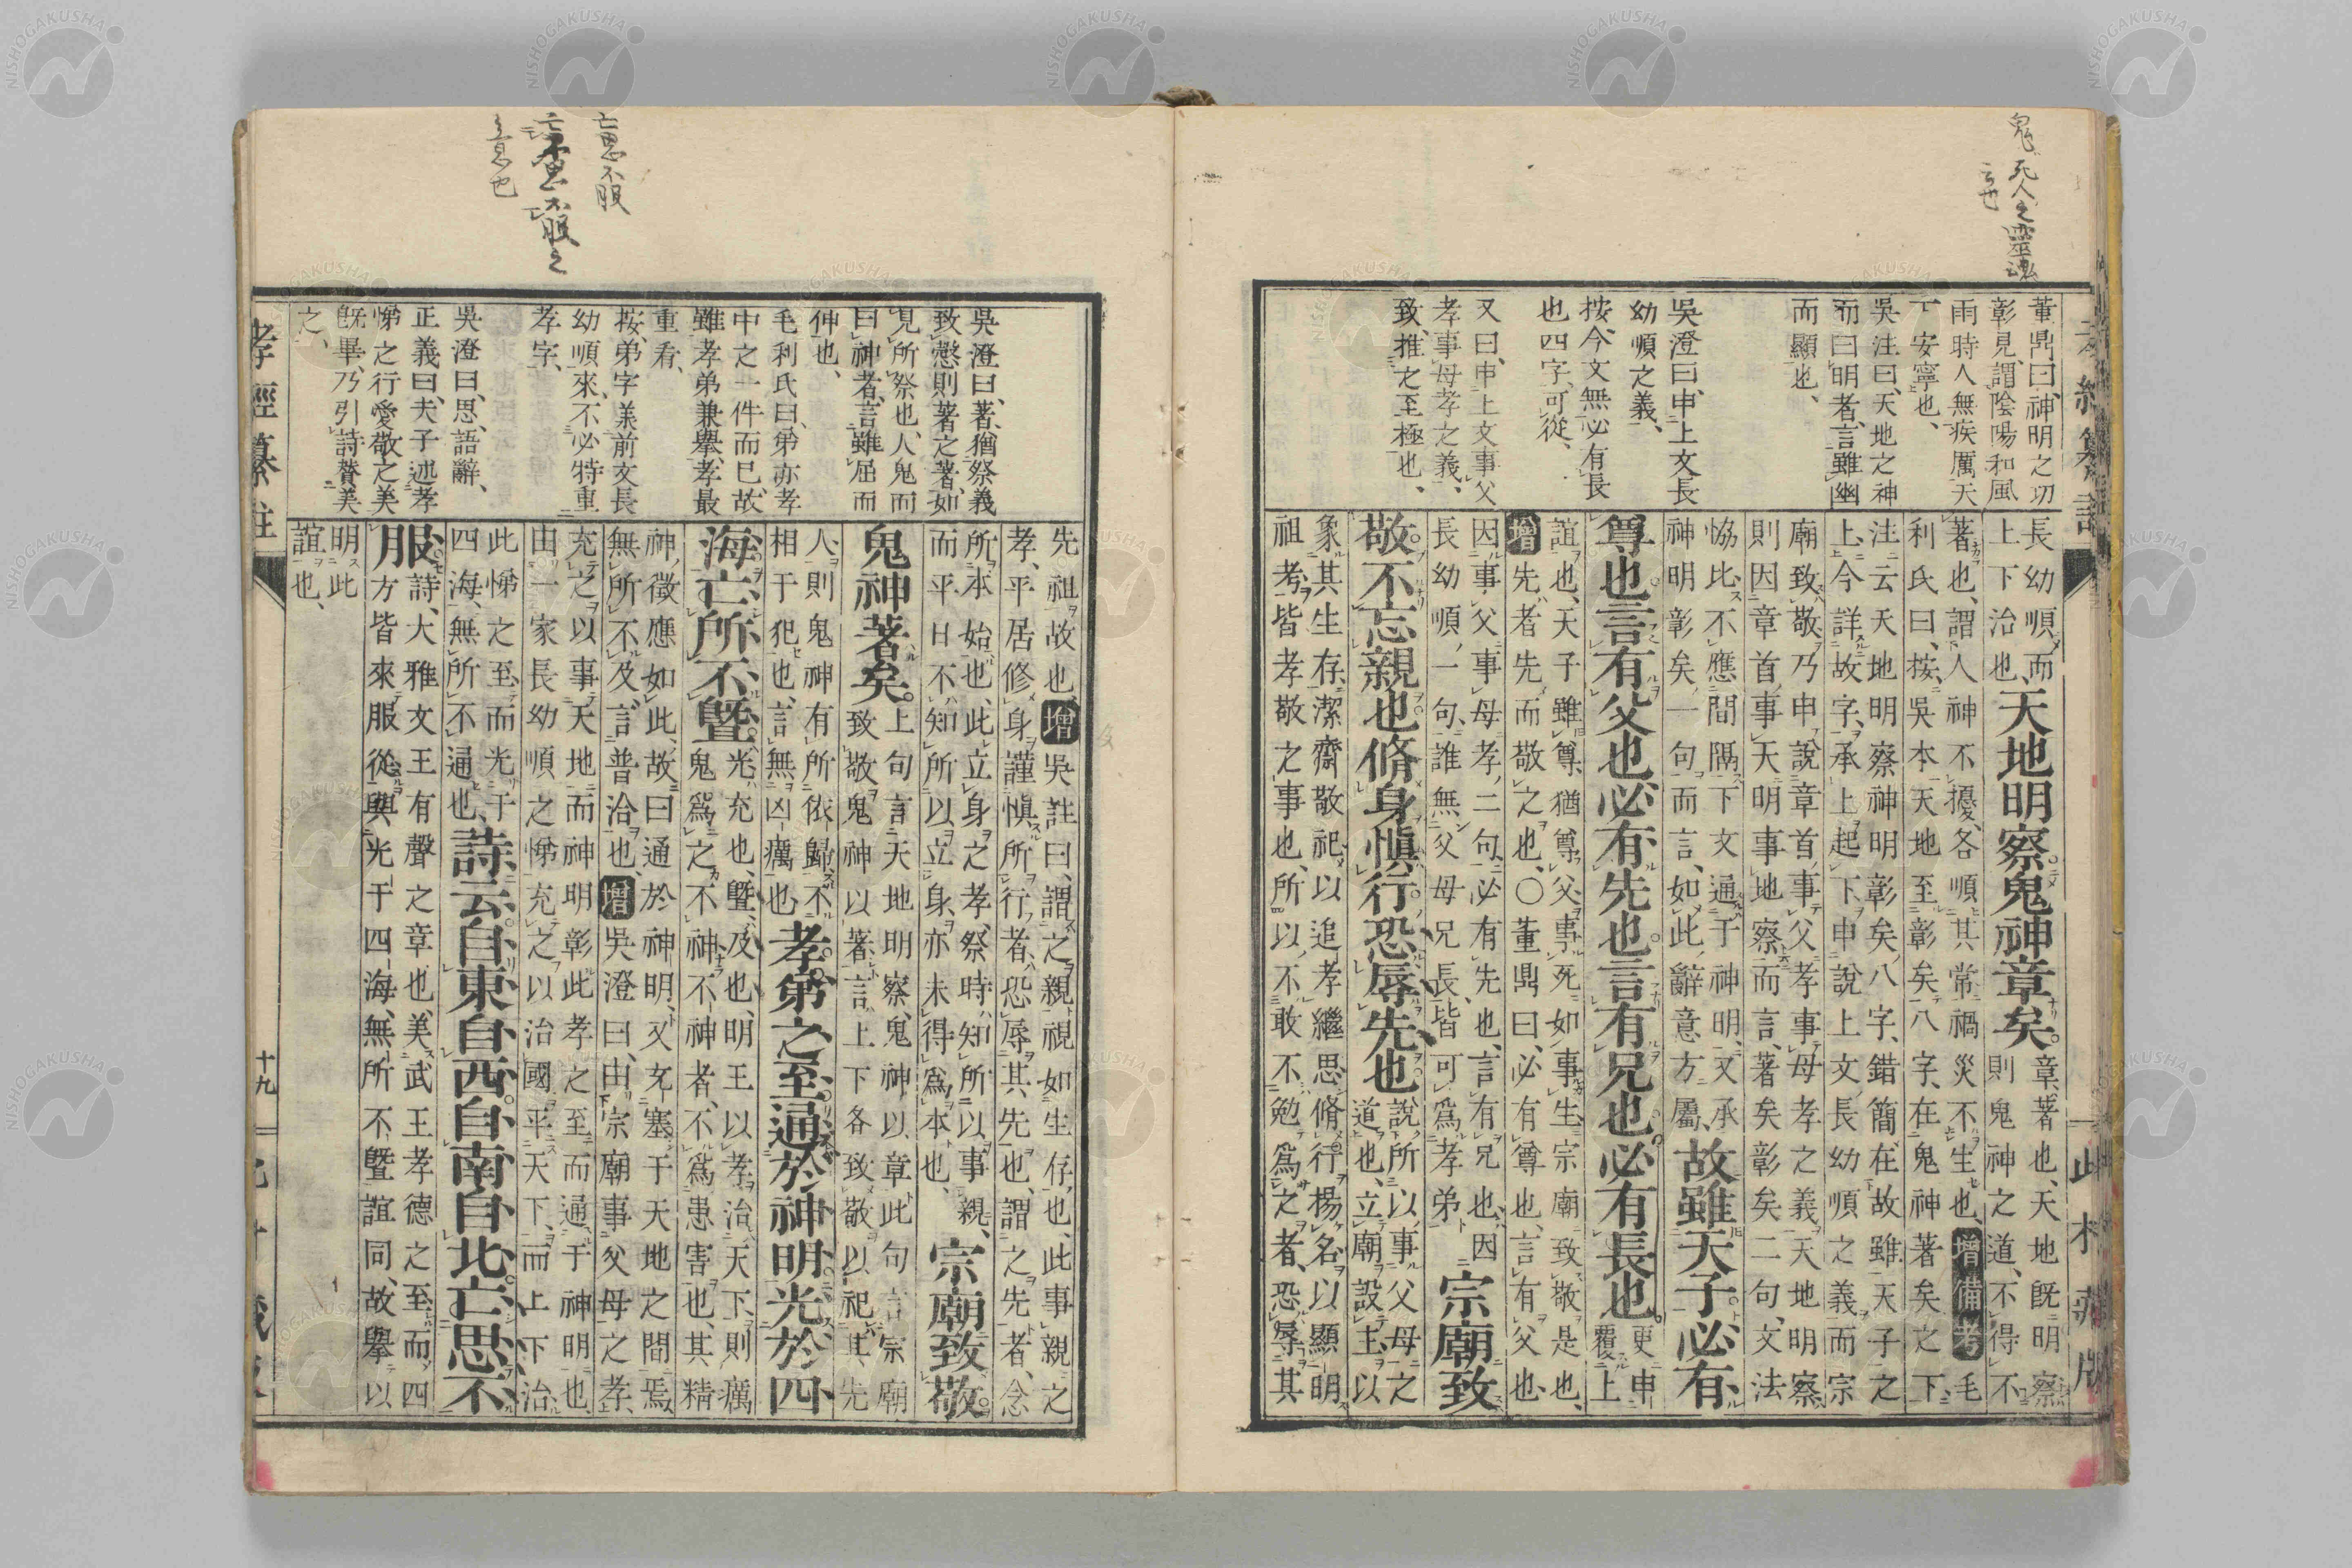 鬼死人之靈魂
云也
董鼎曰、神明之功
彰見、謂陰陽和風
雨時人無疾厲天
下安寧也、
吳注曰、天地之神
而曰明者、言雖幽
而顯也、
吳澄曰、申上文長
幼順之義、
按、今文無必有長
也四字、可從、
又曰、申上文事父
孝事母孝之義、
致、推之至極也、
長幼順而
上下治也、
天地明察鬼神章矣。
章、著也、天地既明察
則鬼神之道、不得不
著也、謂人神不擾、各順其常禍災不生也、增備考毛
利氏曰、按、吳本天地至彰矣八字、在鬼神著矣之下、
注云天地明察神明彰矣、八字、錯簡、在故雖天子之
上、今詳故字、承上起下申說上文、長幼順之義而宗
廟致敬乃申說章首、事父孝事母孝之義、天地明察
則因章首、事天明事地察而言、著矣彰矣二句、文法
恊比、不應間隔、下文通于神明、又承
神明彰矣、一句而言、如此、辭意方屬、
故雖天子必有
尊也言有父也必有先也言有兄也必有長也。
更申
覆上
誼也、天子雖尊猶尊父、事死如事生宗廟致敬是也、
增先者先而敬之也、〇董鼎曰、必有尊也、言有父也
因事父事母孝、二句、必有先也、言有兄也、因
長幼順、一句、誰無父母兄長、皆可爲孝弟
宗廟致
敬不忘親也脩身愼行恐辱先也
說所以事父母之
道也、立廟設主以
象其生存、潔齋敬祀以追孝繼思脩行揚名以顯明
祖考、皆孝敬之事也、所以不敢不勉爲之者、恐辱其
孝經纂註
此村藏版
亡思不服
亡不思不服之
意也
吳澄曰、著、猶祭義
致愨則著之著、如
見所祭也、人鬼而
曰神者、言雖屈而
伸也、
毛利氏曰、弟亦孝
中之一件而已、故
雖孝弟兼擧、孝最
重看、
按、弟字義前文長
幼順來、不必特重
孝字、
吳澄曰、思、語辭、
正義曰、夫子述孝
悌之行愛敬之美
旣畢、乃引詩贊美
之、
先祖故也、增吳註曰、謂之親視如生存也、此事親之
孝、平居修身謹愼所行者、恐辱其先也、謂之先者、念
所本始也、此立身之孝、祭時、知所以事親、
而平日不知所以立身、亦未得爲本也、
宗廟致敬。
鬼神著矣。
上句言天地明察、鬼神以章此句言宗廟
致敬鬼神以著、言上下各致敬以祀其先
人、則鬼神有所依歸、不
相于犯也、言無凶癘也、
孝弟之至通於神明光於四
海亡所不曁
光、充也、曁、及也、明王以孝治天下、則癘
鬼爲之不神、不神者、不爲患害也、其精
神、徵應如此、故曰通於神明、又充塞于天地之間焉、
無所不及、言普洽也、增吳澄曰、由宗廟事父母之孝、
充之以事天地而神明彰此孝之至而通于神明也、
由一家長幼順之悌充之以治國平天下、而上下治、
此悌之至、而光于
四海、無所不通也、
詩云自東自西自南自北亡思不
服
詩、大雅文王有聲之章也、美武王孝德之至而四
方皆來服從、與光于四海、無所不曁誼同、故擧以
明此
誼也、
孝經纂註
十九